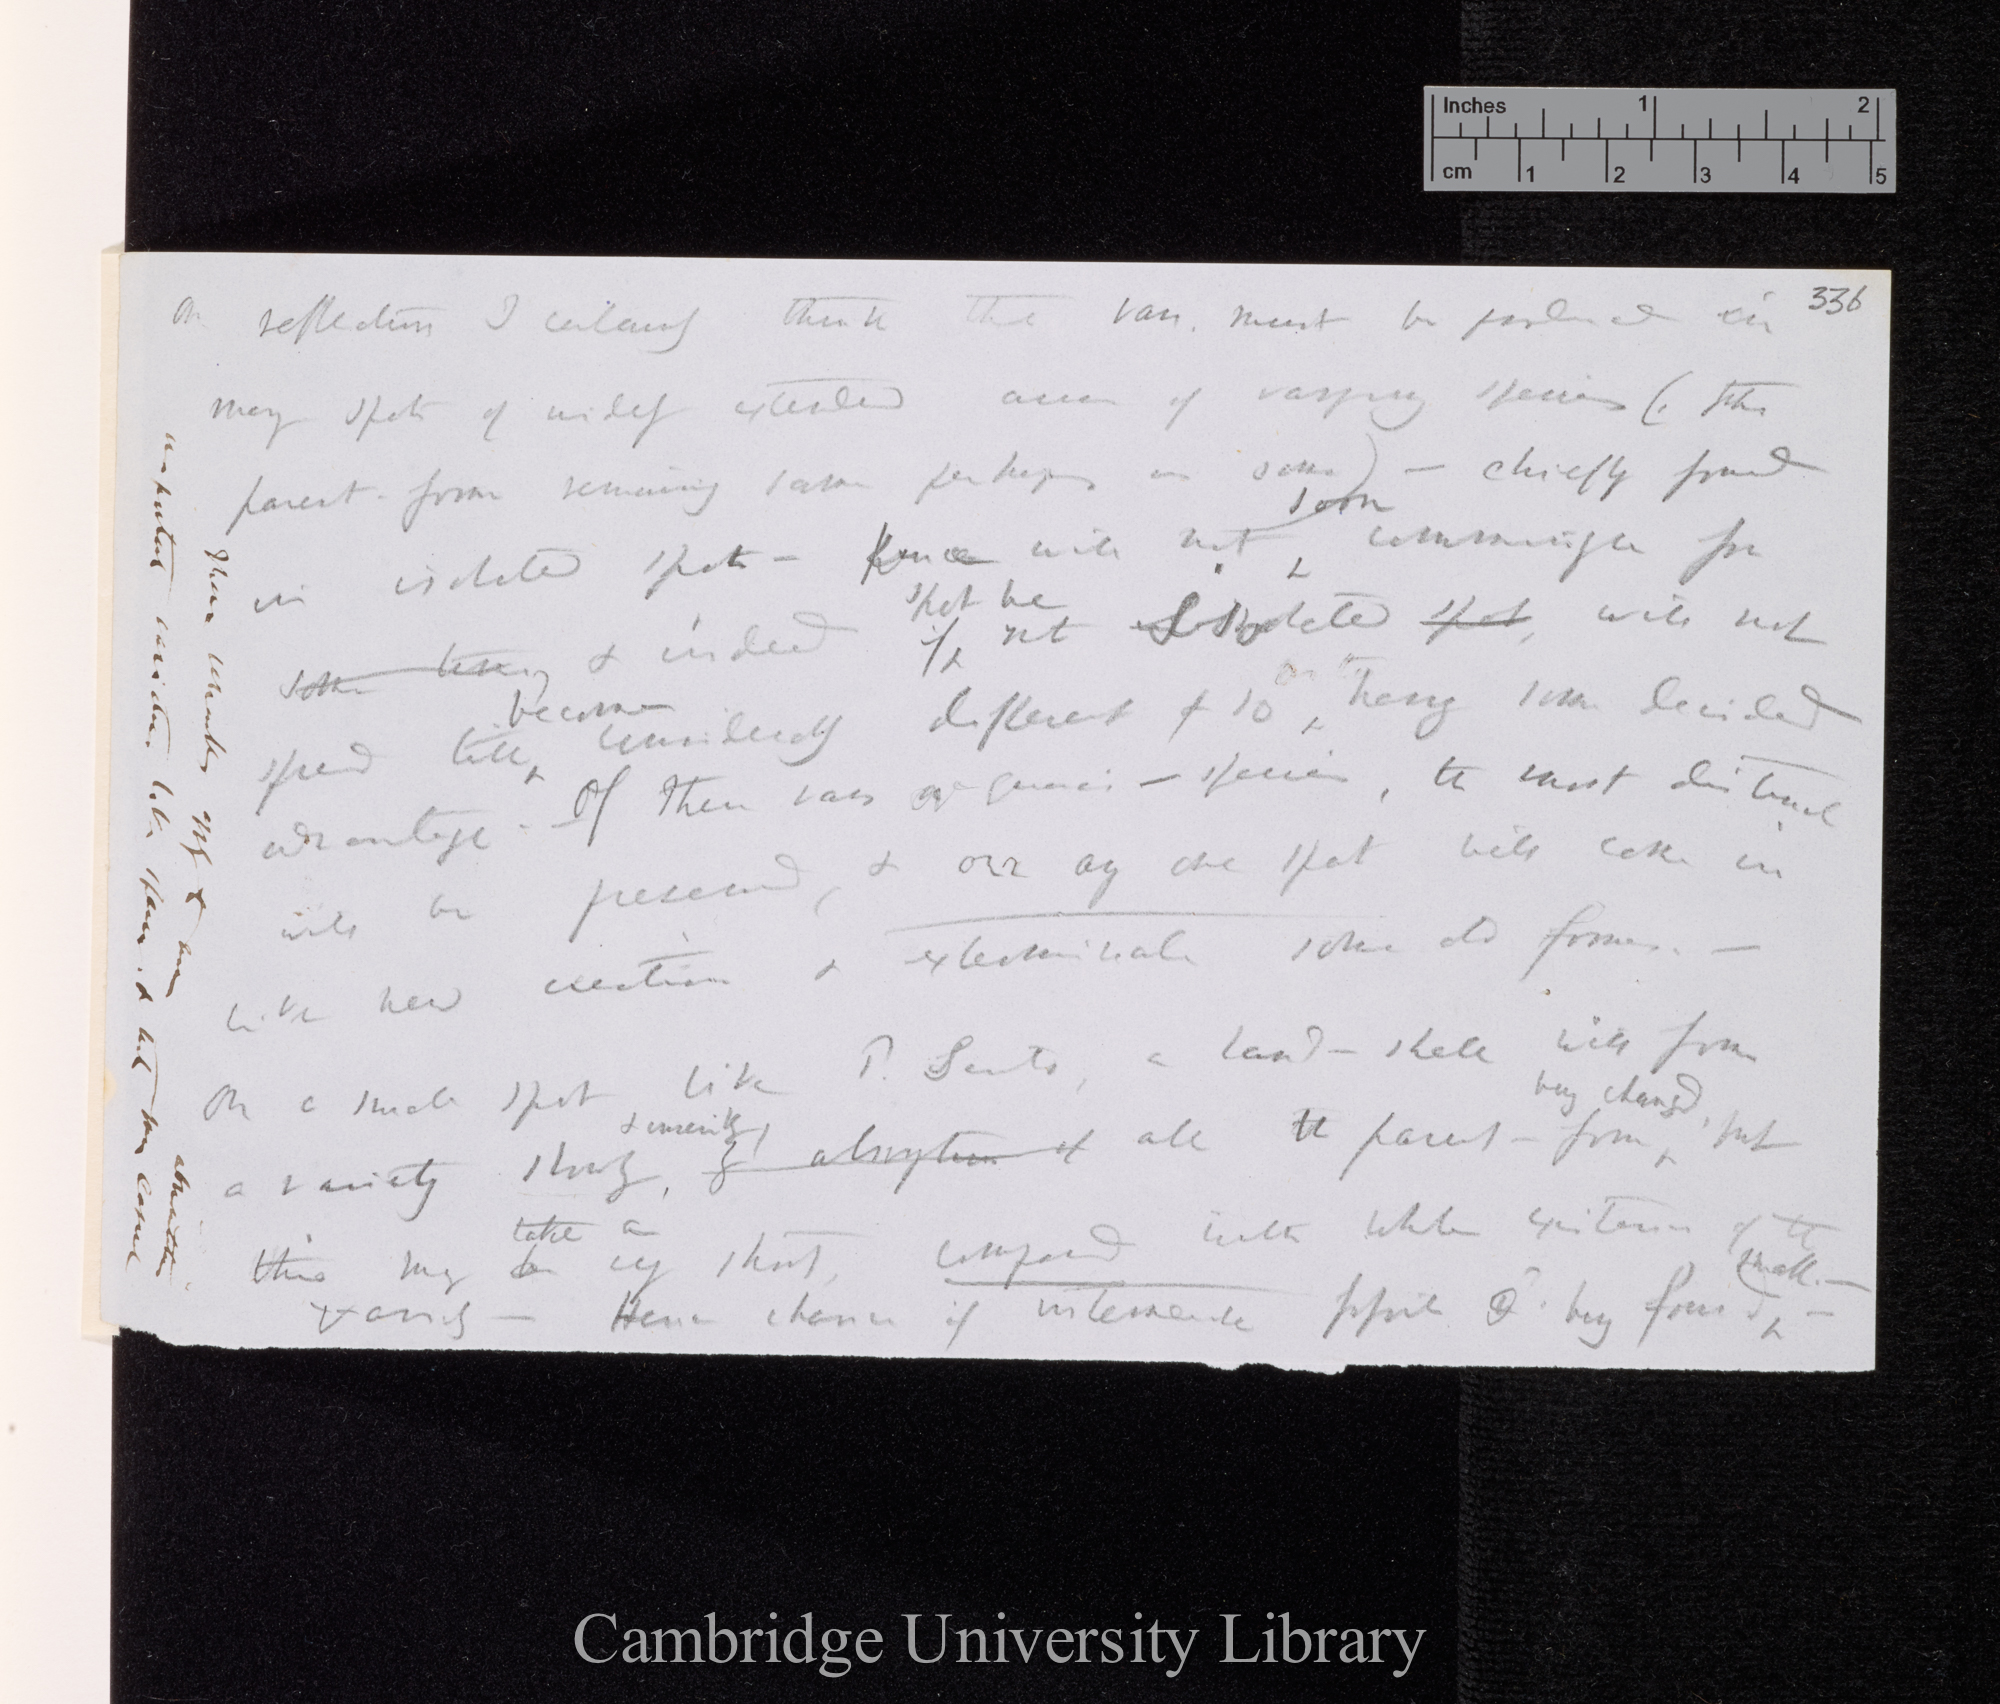 Inches 1 2
cm 1 2 3 4 5
336
On reflection I certainly think that vars. must be produced in
many spots of widely extended area of varying species (the
parent-form remaining same perhaps in some) — chiefly found
in isolated spots — Hence will not soon commingle for
some time, & indeed if spot be not isolated spot, will not
spread till become considerably different & so having some decided
advantage. — Of these vars or species, the most distinct
will be preserved, & over any one spot will come in
like new creation & exterminate some old forms. —
On a small spot like P. Santo, a land-shell will form
a variety slowly, & absorption of all the parent-form, very changed, but
this may be take a very short, compared with whole existence of the
variety — Hence chance of intermediate fossil being found, small. —
There remarks apply to
like same, & but
Cambridge University Library